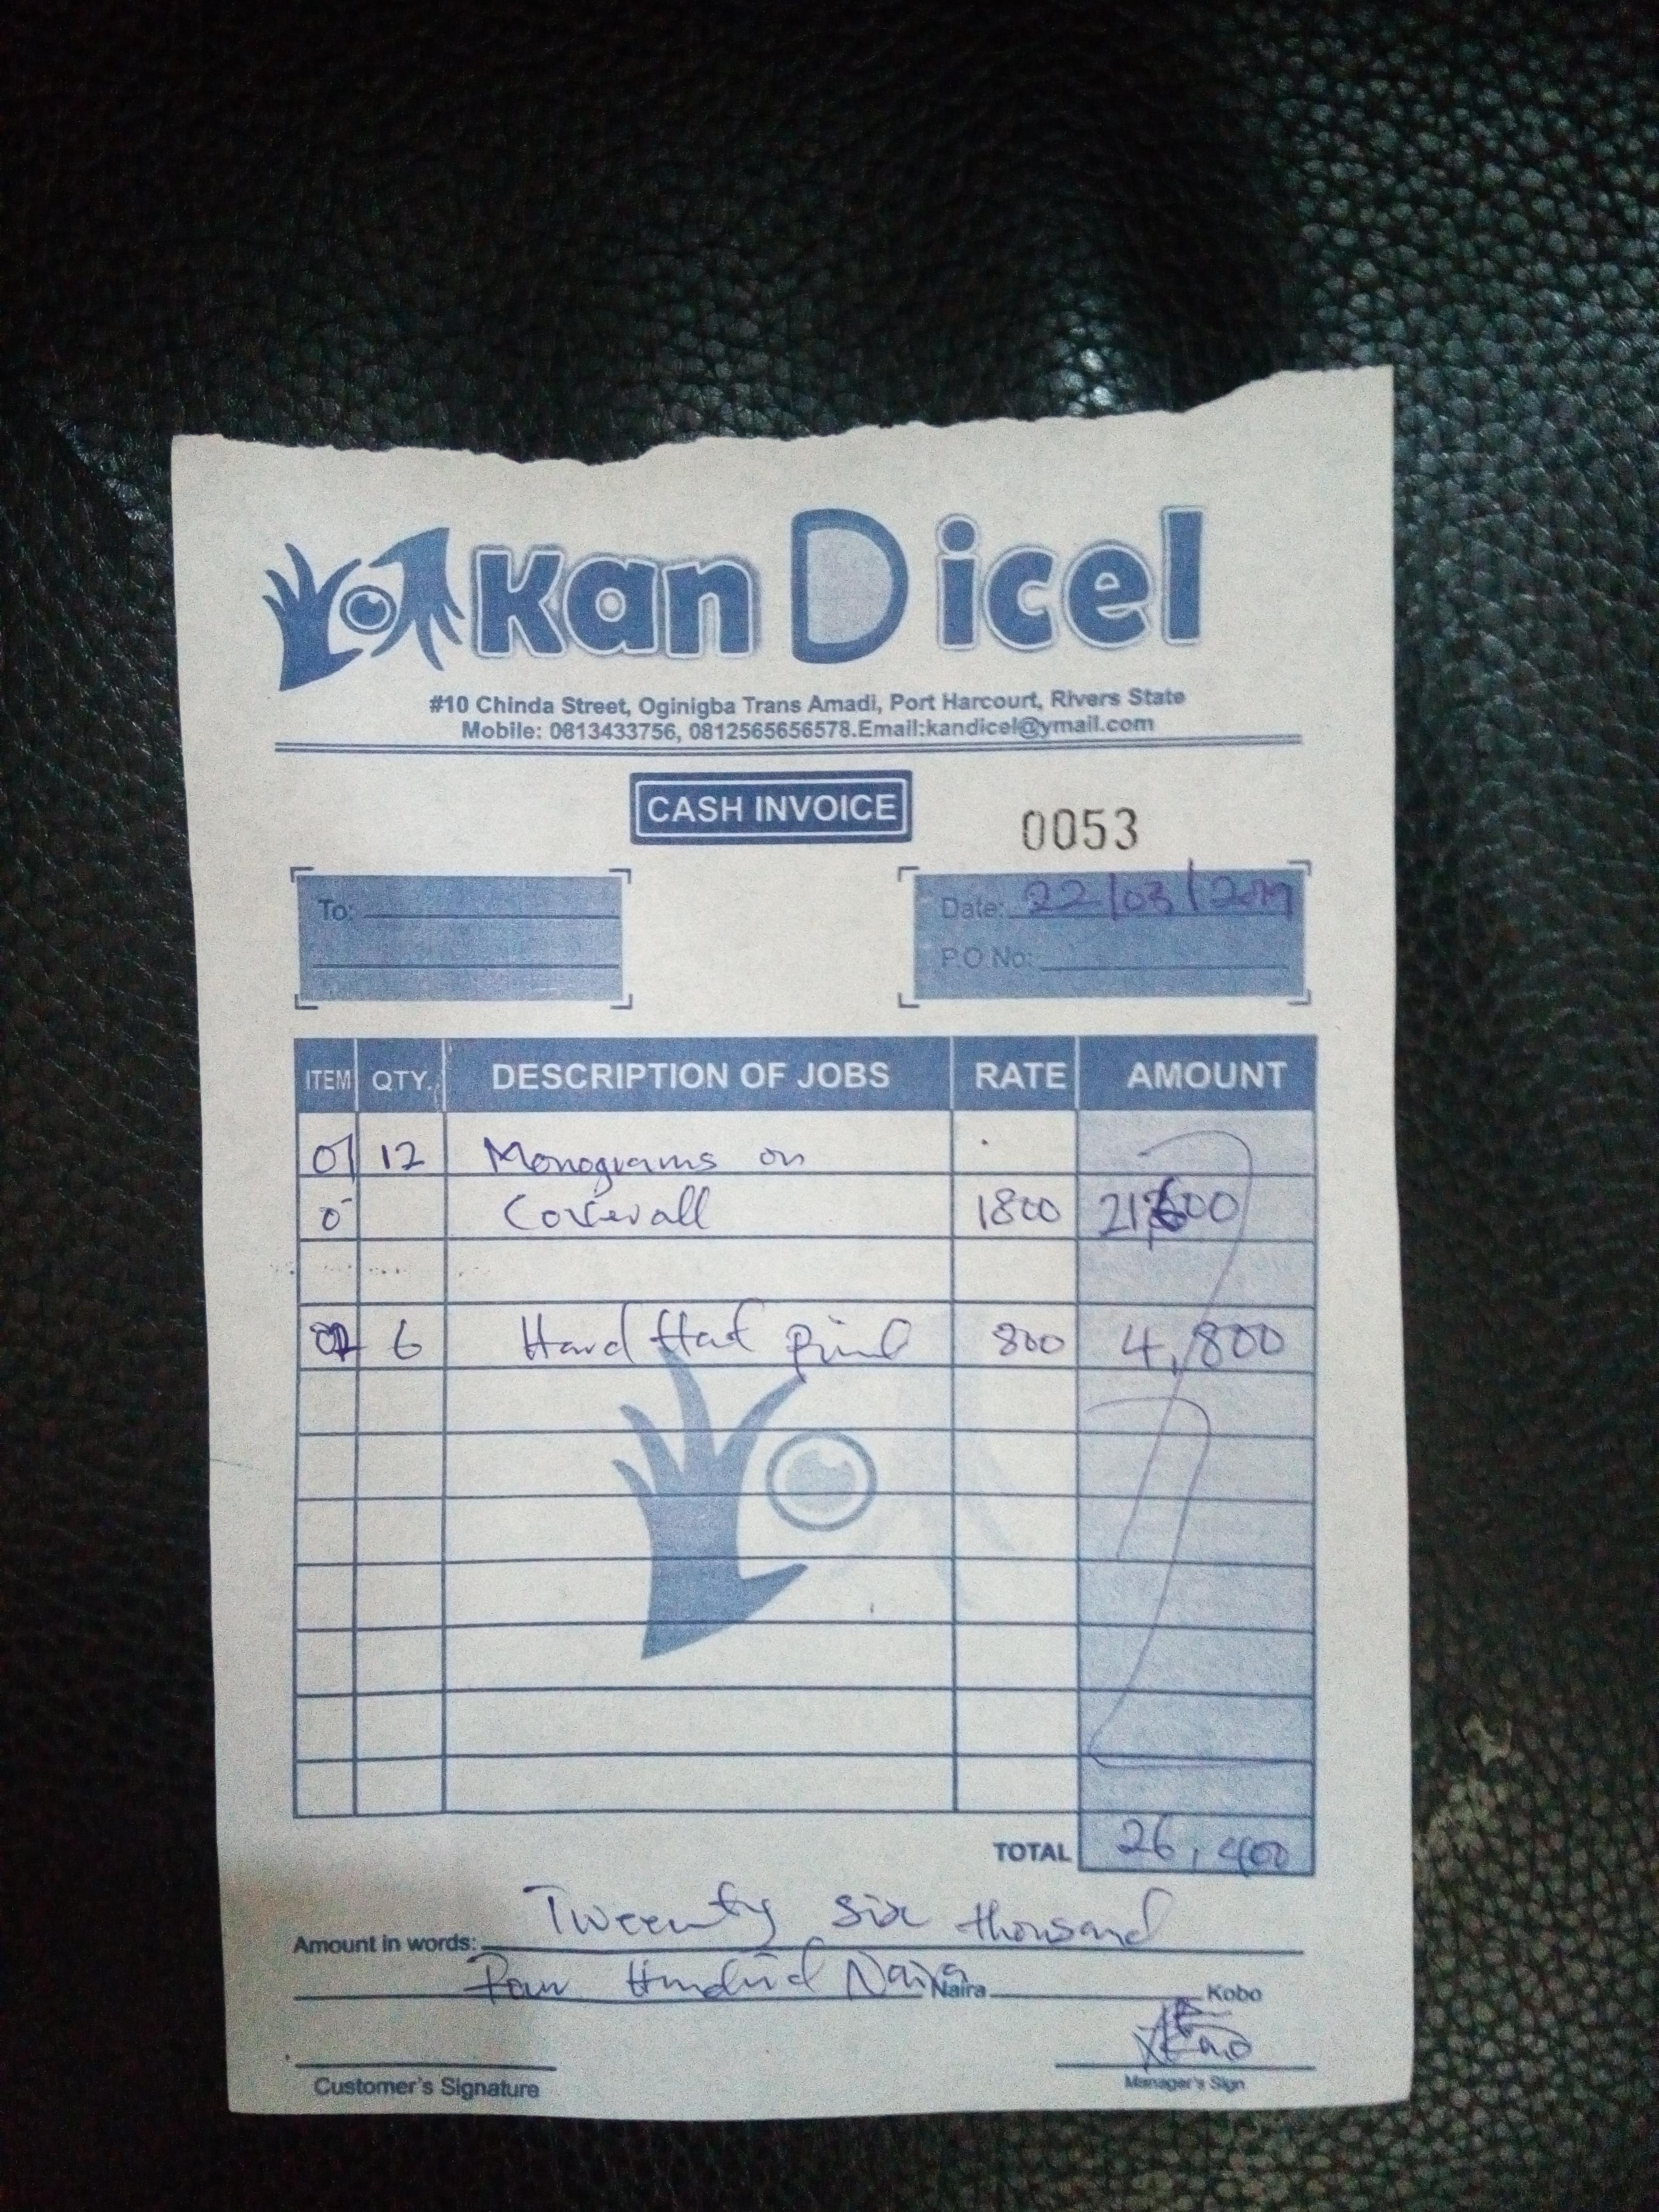 Kan Dicel
#10 Chinda Street, Oginigba Trans Amadi, Port Harcourt, Rivers State
Mobile: 0813433756, 0812565656578.Email:kandicel@ymail.com
CASH INVOICE 0053
To: Date: 22/03/2019
P.O No:
ITEM QTY. DESCRIPTION OF JOBS RATE AMOUNT
01 12 Monograms on
Coverall 1800 21,600
02 6 Hard Hat Print 800 4,800
TOTAL 26,400
Amount in words: Tweenty six thousand
Four Hundrid Naira Naira Kobo
Customer's Signature Manager's Sign